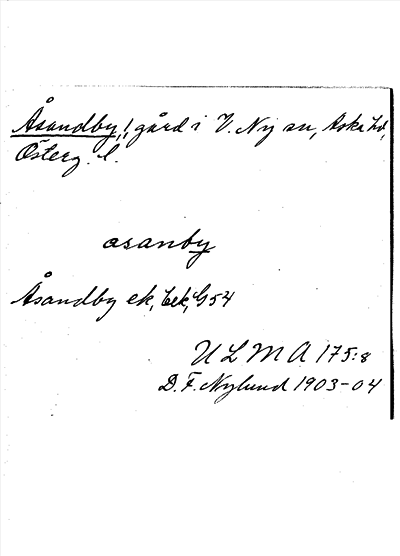 Åsandby, ! gård i V. Ny sn, Aska hd,
Österg. l.
asanby
Åsandby ek,
ULMA 175:8
D. F. Nylund 1903-04